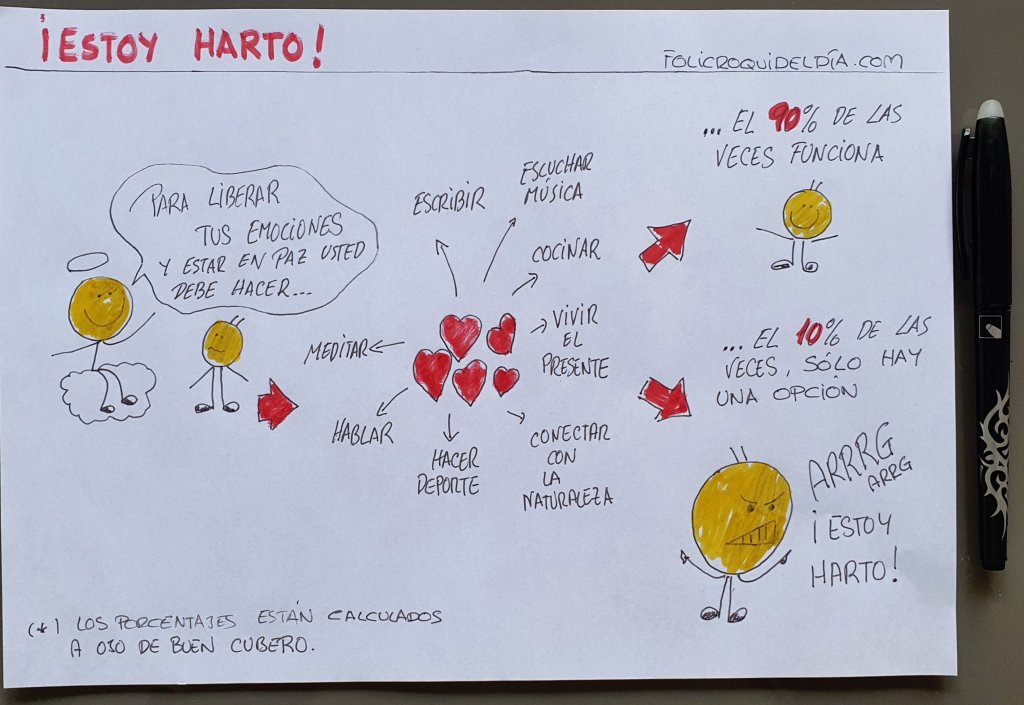 ¡ESTOY HARTO!
FOLICROQUIDELDÍA.COM
PARA LIBERAR
TUS EMOCIONES
Y ESTAR EN PAZ USTED
DEBE HACER...
ESCRIBIR
ESCUCHAR
MÚSICA
COCINAR
VIVIR
EL
PRESENTE
CONECTAR
CON
LA
NATURALEZA
HACER
DEPORTE
HABLAR
MEDITAR
... EL 90% DE LAS
VECES FUNCIONA
... EL 10% DE LAS
VECES, SÓLO HAY
UNA OPCIÓN
ARRRG
ARRG
¡ESTOY
HARTO!
(*) LOS PORCENTAJES ESTÁN CALCULADOS
A OJO DE BUEN CUBERO.